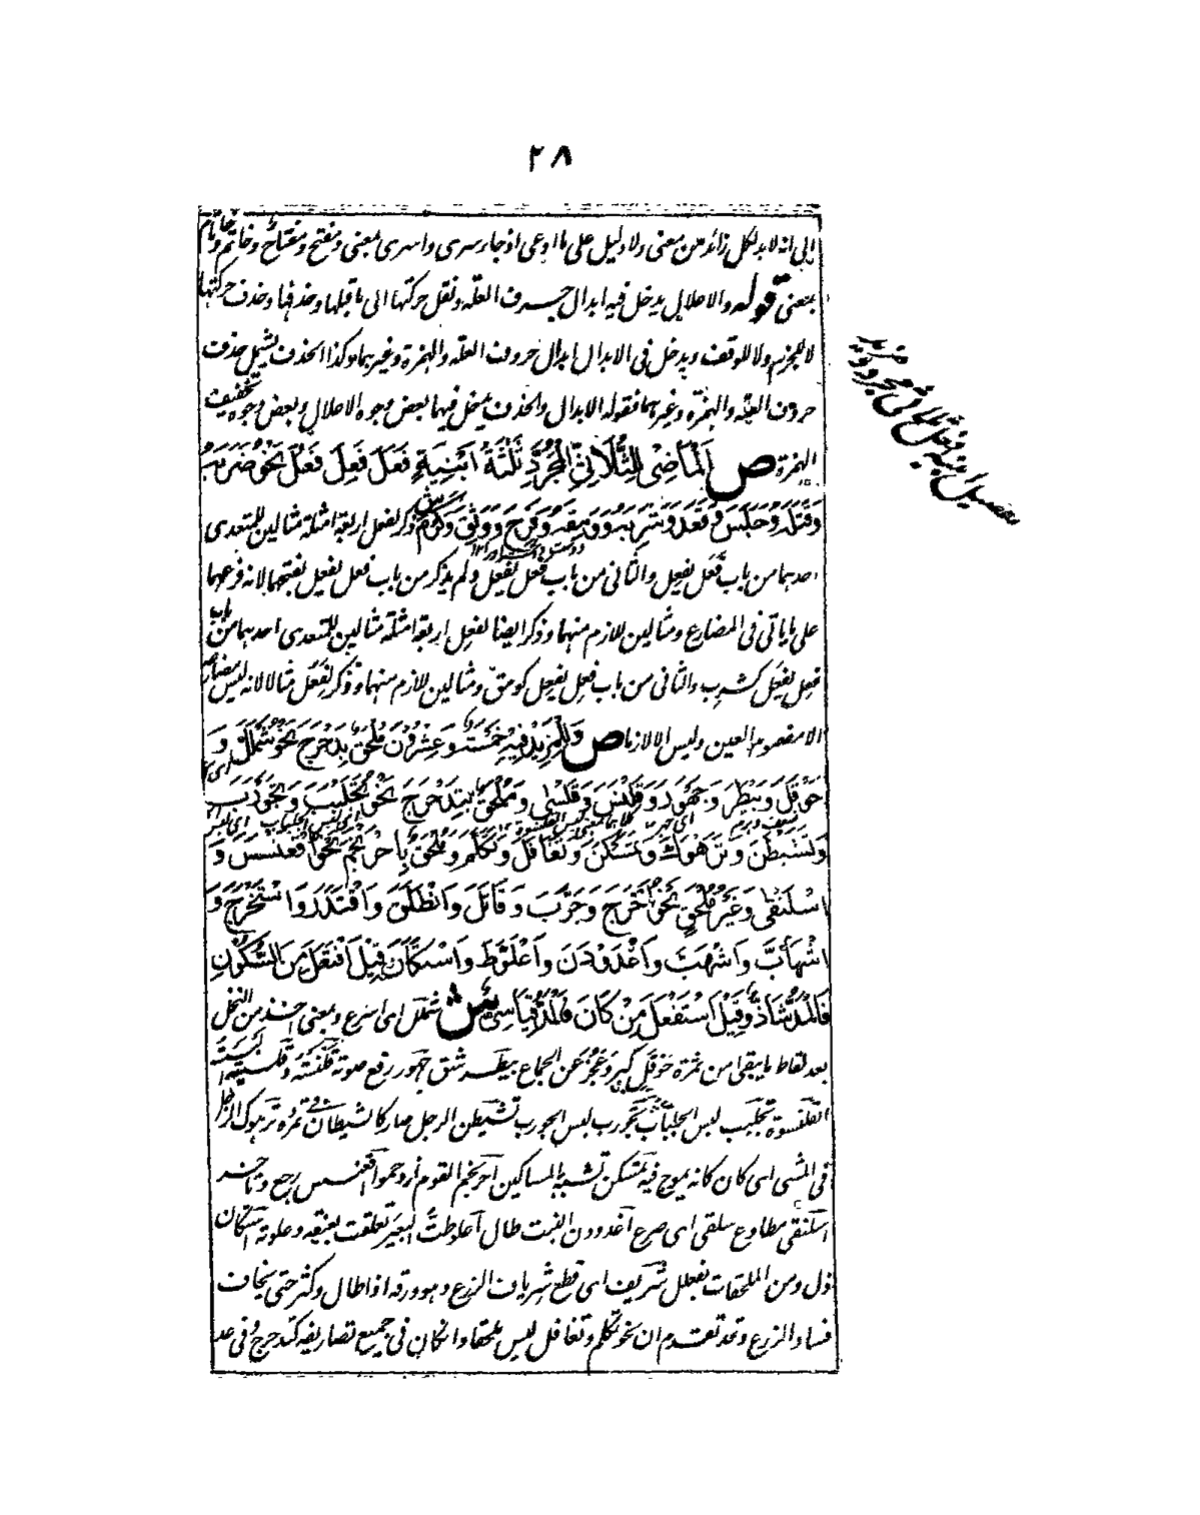 ٢٨
الى انه لا بد لكل زائد من معنى ولا دليل على ما ادعى اذ جاء سرى واسرى بمعنى ومفتح ومفتاح وخاتم وخاتام
بمعنى قوله والاعلال يدخل فيه ابدال حرف العلة ونقل حركتها الى ما قبلها وحذفها وحذف حركتها
لا للجزم ولا للوقف ويدخل فى الابدال ابدال حروف العلة والهمزة وغيرهما وكذا الحذف يشمل حذف
حروف العلة والهمزة وغيرهما فقوله الابدال والحذف يدخل فيهما بعض وجوه الاعلال وبعض وجوه تخفيف
الهمزة ص اَلْمَاضِى لِلثُّلَاثِىِّ الْمُجَرَّدِ ثَلٰثَةُ اَبْنِيَةٍ فَعَلَ فَعِلَ فَعُلَ نَحْوُ ضَرَبَهُ
وَقَتَلَهُ وَجَلَسَ وَقَعَدَ وَشَرِبَهُ وَوَمِقَهُ وَفَرِحَ وَوَثِقَ وَكَرُمَ ش ذكر لفعل اربعة امثلة مثالين للمتعدى
احدهما من باب فعل يفعل والثانى من باب فعل يفعل ولم يذكر من باب فعل يفعل بفتحهما لانه فرعهما
على ما ياتى فى المضارع ومثالين للازم منهما وذكر ايضا لفعل اربعة امثلة مثالين للمتعدى احدهما من باب
فعل يفعل كشرب والثانى من باب فعل يفعل كومق ومثالين للازم منهما وذكر لفعل مثالا لانه ليس مضارعه
الا مضموم العين وليس الا لازما ص وَلِلْمَزِيْدِ فِيْهِ خَمْسَةٌ وَعِشْرُوْنَ مُلْحَقٌ بِدَحْرَجَ نَحْوُ شَمْلَلَ وَ
حَوْقَلَ وَبَيْطَرَ وَجَهْوَرَ وَقَلْنَسَ وَقَلْسٰى وَمُلْحَقٌ بِتَدَحْرَجَ نَحْوُ تَجَلْبَبَ وَتَجَوْرَبَ
وَتَشَيْطَنَ وَتَرَهْوَكَ وَتَمَسْكَنَ وَتَغَافَلَ وَتَكَلَّمَ وَمُلْحَقٌ بِاحْرَنْجَمَ نَحْوُ اقْعَنْسَسَ وَ
اسْلَنْقٰى وَغَيْرُ مُلْحَقٍ نَحْوُ اَخْرَجَ وَجَرَّبَ وَقَاتَلَ وَانْطَلَقَ وَاقْتَدَرَ وَاسْتَخْرَجَ وَ
اشْهَابَّ وَاشْهَبَّ وَاغْدَوْدَنَ وَاعْلَوَّطَ وَاسْتَكَانَ قِيْلَ افْتَعَلَ مِنَ السُّكُوْنِ
فَالْمَدُّ شَاذٌّ وَقِيْلَ اسْتَفْعَلَ مِنْ كَانَ فَالْمَدُّ قِيَاسِىٌّ ش شملل اى اسرع وبمعنى اخذ من النخل
بعد لقاط ما يبقى من ثمرة حوقل كبر وعجز عن الجماع بيطر شق جهور رفع صوته قلنسته وقلسيته البسته
القلنسوة تجلبب لبس الجلباب تجورب لبس الجورب تشيطن الرجل صار كالشيطان فى تمرده ترهوك الرجل
فى المشى اى كان كانه يموج فيه تمسكن تشبه بالمساكين احرنجم القوم ازدحموا اقعنسس رجع وتاخر
اسلنقى مطاوع سلقى اى صرع اغدودن النبت طال اعلوطت البعير تعلقت بعنقه وعلوته استكان
ذل ومن الملحقات بفعلل شريف اى قطع شرياف الزرع وهو ورقه اذا طال وكثر حتى يخاف
فساد الزرع وقد تقدم ان نحو تكلم وتغافل ليس ملحقا وان كان فى جميع تصاريفه كتدحرج وفى عد
تفصيل ابنية فعل ثلاثى مجرد ومزيد